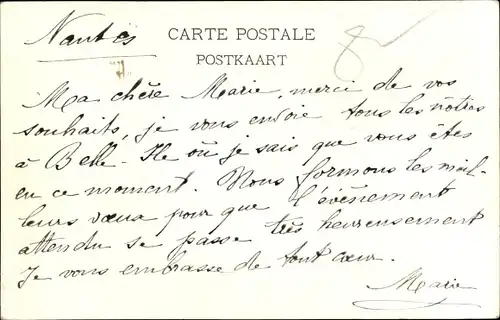 Nantes
CARTE POSTALE
POSTKAART
Ma chère Marie, merci de vos
souhaits, je vous envoie tous les nôtres
à Belle-Ile où je sais que vous êtes
en ce moment. Nous formons les meil-
leurs vœux pour que l'évènement
attendu se passe très heureusement
Je vous embrasse de tout cœur.
Marie